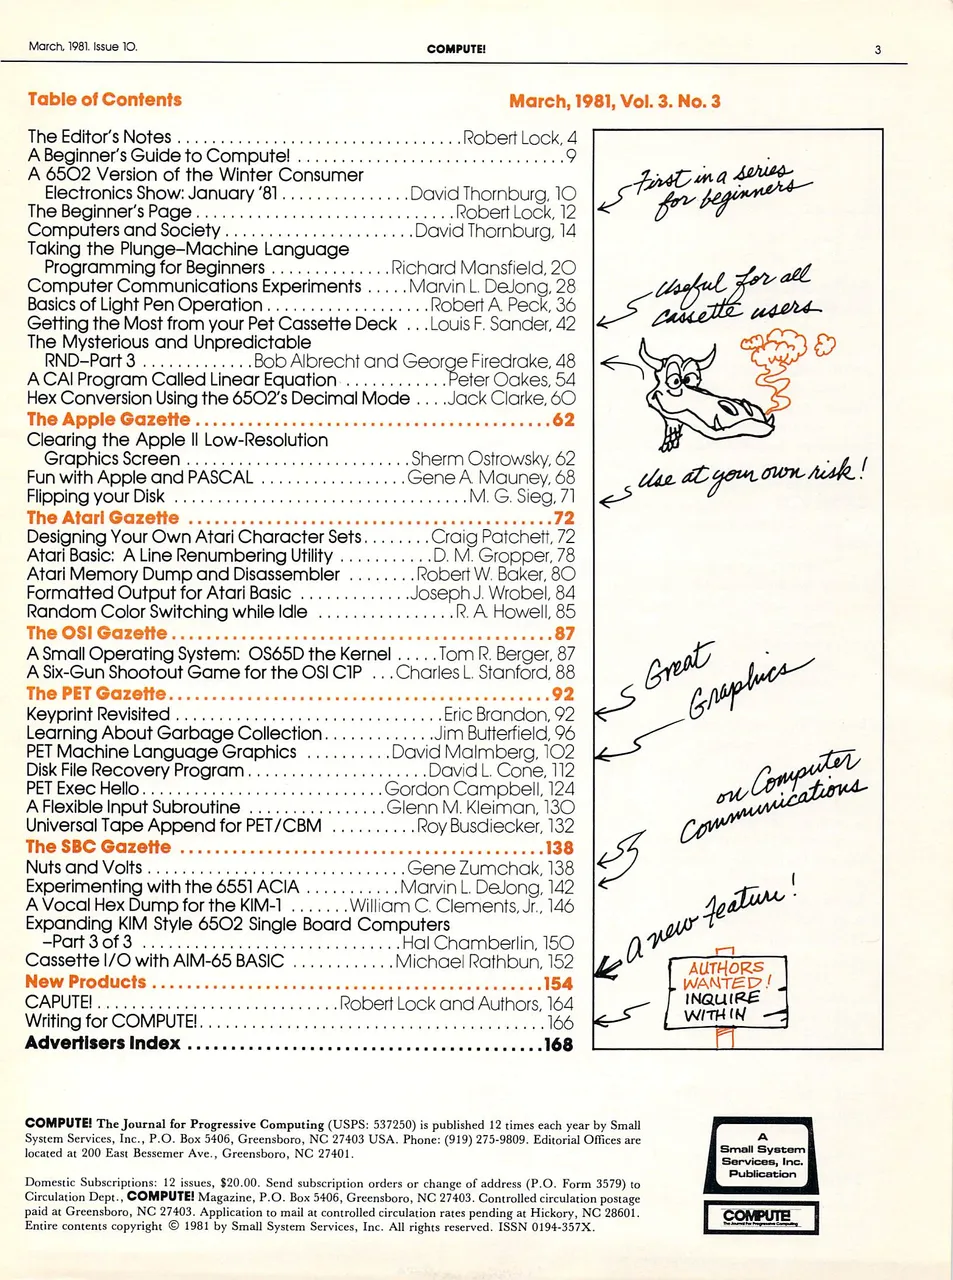 March, 1981. Issue 10.
COMPUTE!
3
Table of Contents
March, 1981, Vol. 3. No. 3
The Editor's Notes . . . . . . . . . . Robert Lock, 4
A Beginner's Guide to Compute! . . . . . . . . . . 9
A 6502 Version of the Winter Consumer
Electronics Show: January '81 . . . . . . . . . . David Thornburg, 10
The Beginner's Page . . . . . . . . . . Robert Lock, 12
Computers and Society . . . . . . . . . . David Thornburg, 14
Taking the Plunge–Machine Language
Programming for Beginners . . . . . . . . . . Richard Mansfield, 20
Computer Communications Experiments . . . . . Marvin L. DeJong, 28
Basics of Light Pen Operation . . . . . . . . . . Robert A. Peck, 36
Getting the Most from your Pet Cassette Deck . . . Louis F. Sander, 42
The Mysterious and Unpredictable
RND–Part 3 . . . . . . . . . . Bob Albrecht and George Firedrake, 48
A CAI Program Called Linear Equation . . . . . . . . . . Peter Oakes, 54
Hex Conversion Using the 6502's Decimal Mode . . . . Jack Clarke, 60
The Apple Gazette . . . . . . . . . . 62
Clearing the Apple II Low-Resolution
Graphics Screen . . . . . . . . . . Sherm Ostrowsky, 62
Fun with Apple and PASCAL . . . . . . . . . . Gene A. Mauney, 68
Flipping your Disk . . . . . . . . . . M. G. Sieg, 71
The Atari Gazette . . . . . . . . . . 72
Designing Your Own Atari Character Sets . . . . . . . . Craig Patchett, 72
Atari Basic: A Line Renumbering Utility . . . . . . . . . . D. M. Gropper, 78
Atari Memory Dump and Disassembler . . . . . . . . Robert W. Baker, 80
Formatted Output for Atari Basic . . . . . . . . . . Joseph J. Wrobel, 84
Random Color Switching while Idle . . . . . . . . . . R. A. Howell, 85
The OSI Gazette . . . . . . . . . . 87
A Small Operating System: OS65D the Kernel . . . . . Tom R. Berger, 87
A Six-Gun Shootout Game for the OSI C1P . . . Charles L. Stanford, 88
The PET Gazette . . . . . . . . . . 92
Keyprint Revisited . . . . . . . . . . Eric Brandon, 92
Learning About Garbage Collection . . . . . . . . . . Jim Butterfield, 96
PET Machine Language Graphics . . . . . . . . . . David Malmberg, 102
Disk File Recovery Program . . . . . . . . . . David L. Cone, 112
PET Exec Hello . . . . . . . . . . Gordon Campbell, 124
A Flexible Input Subroutine . . . . . . . . . . Glenn M. Kleiman, 130
Universal Tape Append for PET/CBM . . . . . . . . . . Roy Busdiecker, 132
The SBC Gazette . . . . . . . . . . 138
Nuts and Volts . . . . . . . . . . Gene Zumchak, 138
Experimenting with the 6551 ACIA . . . . . . . . . . Marvin L. DeJong, 142
A Vocal Hex Dump for the KIM-1 . . . . . . . William C. Clements, Jr., 146
Expanding KIM Style 6502 Single Board Computers
–Part 3 of 3 . . . . . . . . . . Hal Chamberlin, 150
Cassette I/O with AIM-65 BASIC . . . . . . . . . . Michael Rathbun, 152
New Products . . . . . . . . . . 154
CAPUTE! . . . . . . . . . . Robert Lock and Authors, 164
Writing for COMPUTE! . . . . . . . . . . 166
Advertisers Index . . . . . . . . . . 168
First in a series
for beginners
Useful for all
cassette users
Use at your own risk!
Great
Graphics
on Computer
Communications
A new feature!
AUTHORS
WANTED!
INQUIRE
WITHIN
COMPUTE! The Journal for Progressive Computing (USPS: 537250) is published 12 times each year by Small
System Services, Inc., P.O. Box 5406, Greensboro, NC 27403 USA. Phone: (919) 275-9809. Editorial Offices are
located at 200 East Bessemer Ave., Greensboro, NC 27401.
Domestic Subscriptions: 12 issues, $20.00. Send subscription orders or change of address (P.O. Form 3579) to
Circulation Dept., COMPUTE! Magazine, P.O. Box 5406, Greensboro, NC 27403. Controlled circulation postage
paid at Greensboro, NC 27403. Application to mail at controlled circulation rates pending at Hickory, NC 28601.
Entire contents copyright © 1981 by Small System Services, Inc. All rights reserved. ISSN 0194-357X.
A
Small System
Services, Inc.
Publication
COMPUTE!
The Journal For Progressive Computing